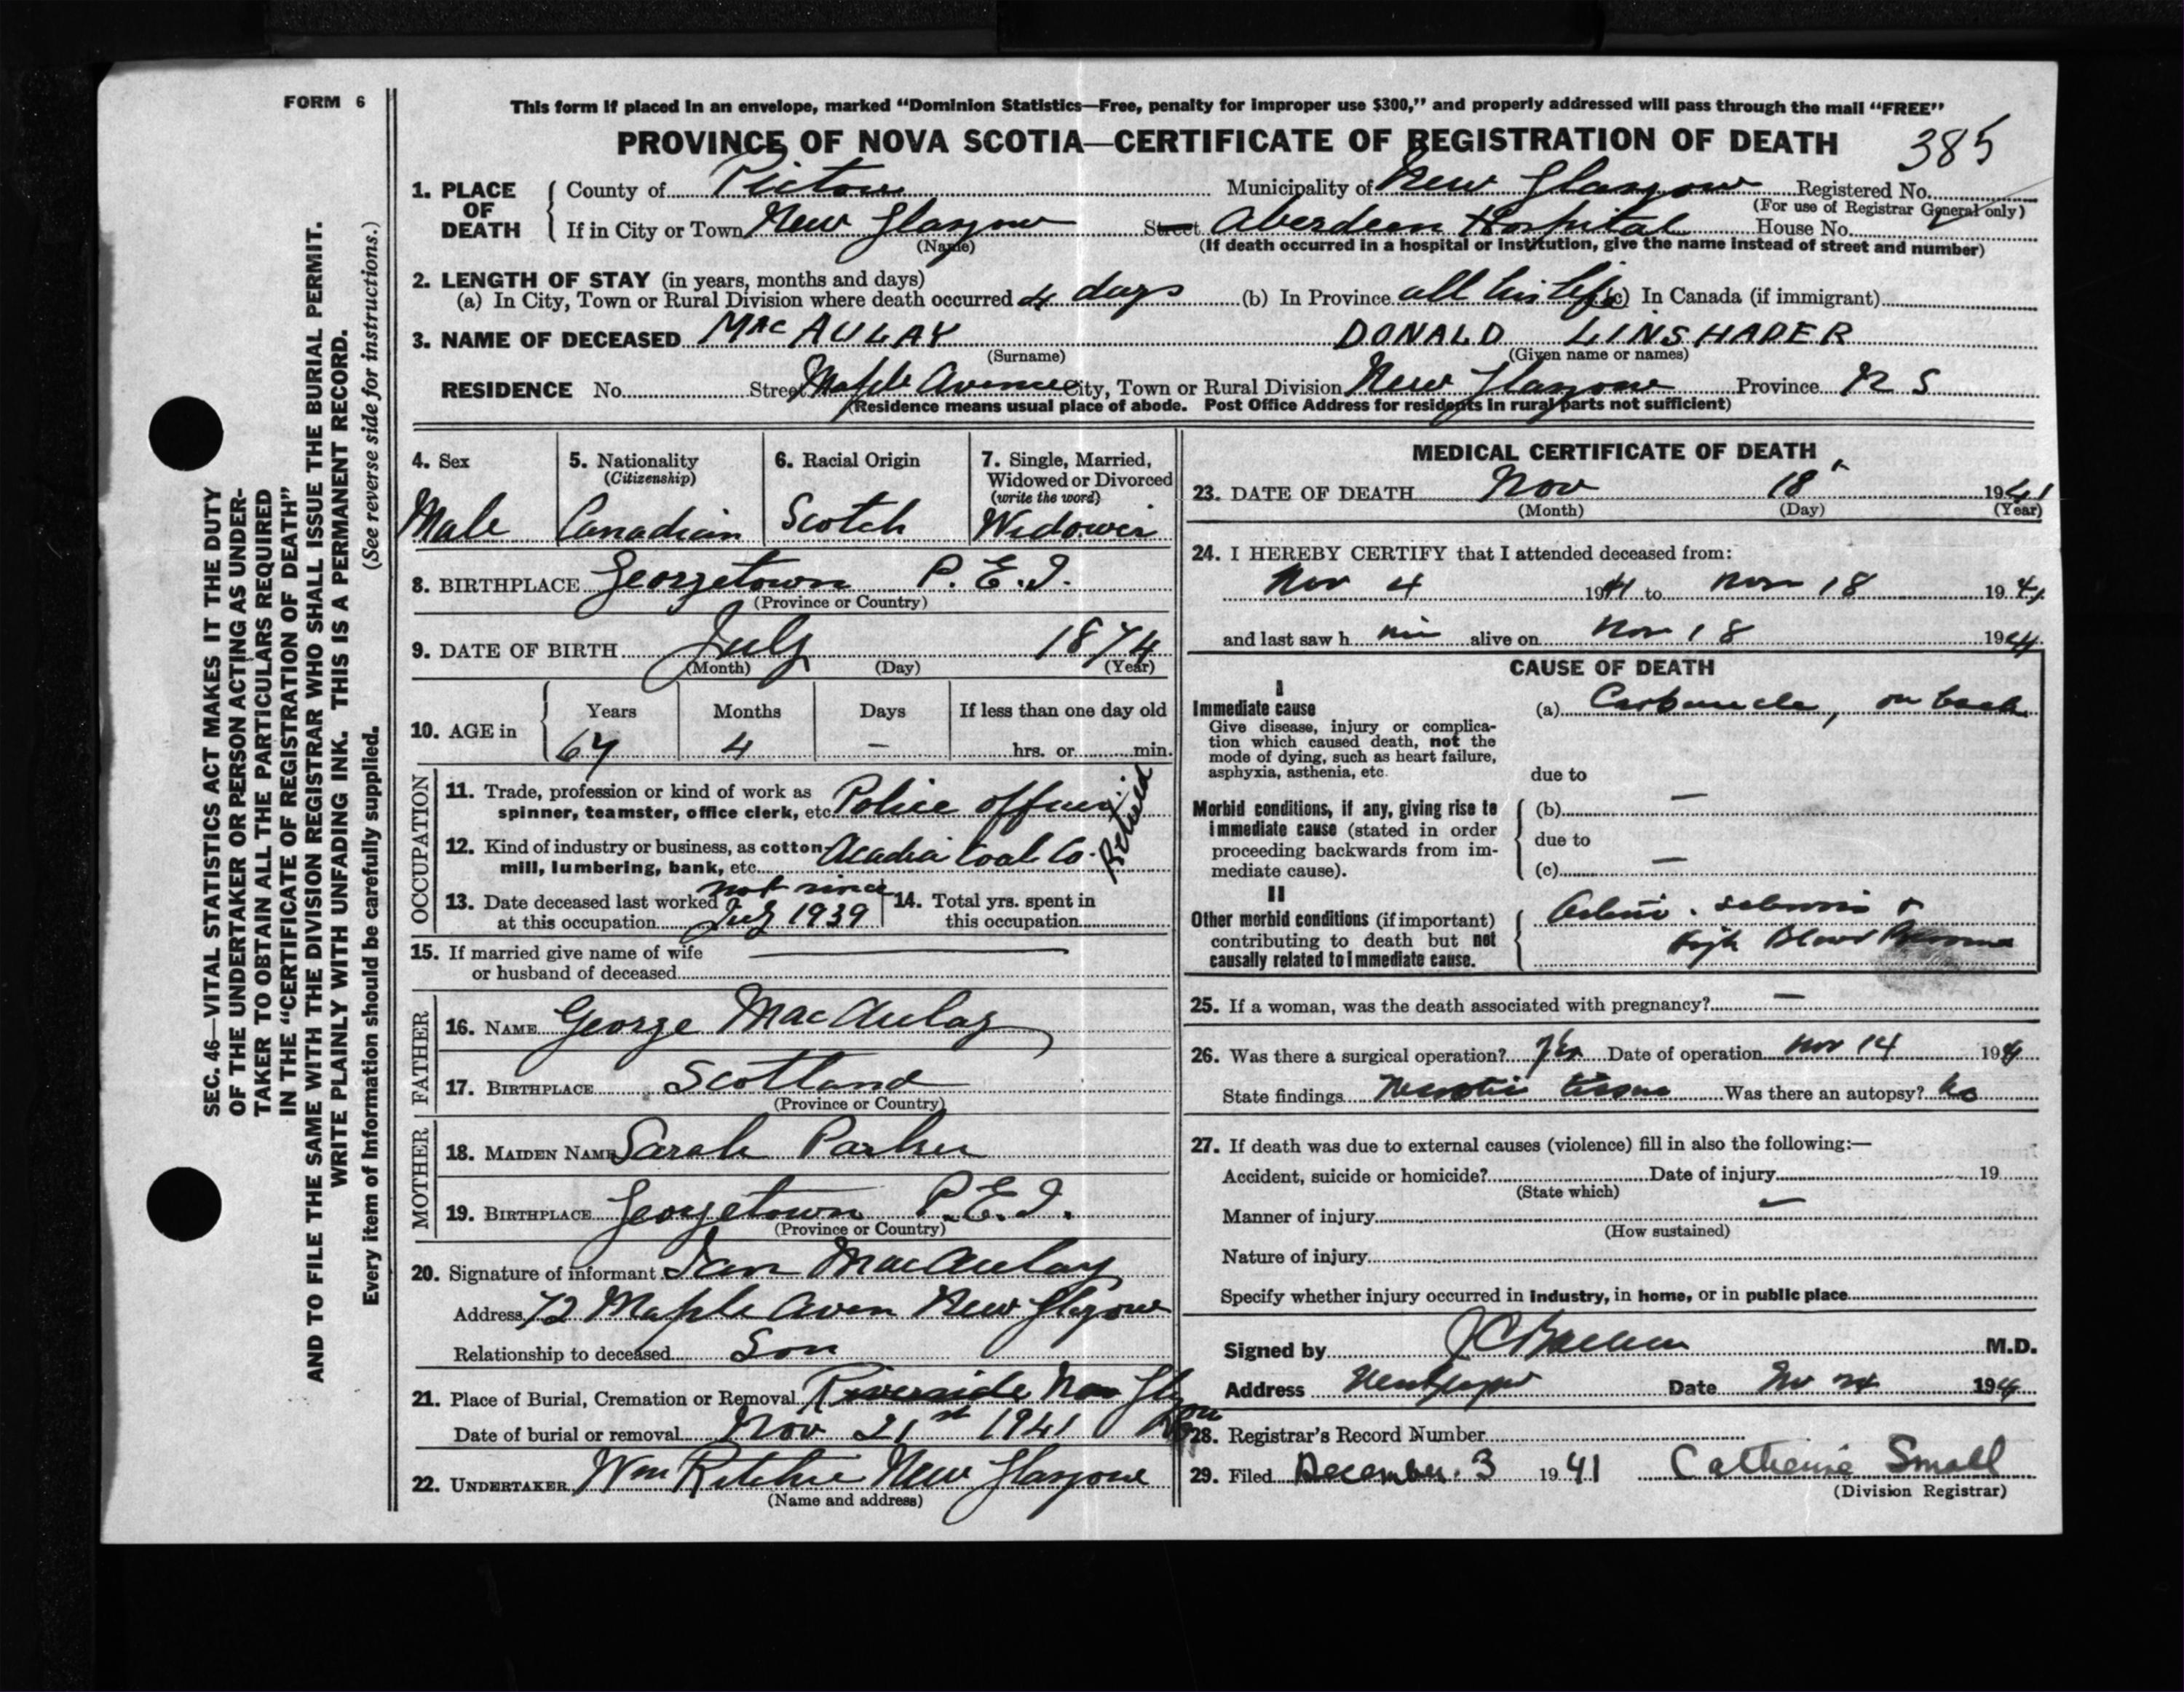 FORM 6
This form if placed in an envelope, marked “Dominion Statistics—Free, penalty for improper use $300,” and properly addressed will pass through the mail “FREE”
PROVINCE OF NOVA SCOTIA—CERTIFICATE OF REGISTRATION OF DEATH 385
1. PLACE OF DEATH County of Pictou Municipality of New Glasgow Registered No.
(For use of Registrar General only)
If in City or Town New Glasgow Street Aberdeen Hospital House No.
(Name) (If death occurred in a hospital or institution, give the name instead of street and number)
2. LENGTH OF STAY (in years, months and days)
(a) In City, Town or Rural Division where death occurred 4 days (b) In Province all his life (c) In Canada (if immigrant)
3. NAME OF DECEASED MacAULAY DONALD LINSHADER
(Surname) (Given name or names)
RESIDENCE No. Street Maple Avenue City, Town or Rural Division New Glasgow Province N S
(Residence means usual place of abode. Post Office Address for residents in rural parts not sufficient)
4. Sex 5. Nationality 6. Racial Origin 7. Single, Married,
(Citizenship) Widowed or Divorced
(write the word)
Male Canadian Scotch Widower
8. BIRTHPLACE Georgetown P.E.I.
(Province or Country)
9. DATE OF BIRTH July 1874
(Month) (Day) (Year)
10. AGE in Years Months Days If less than one day old
67 4 — hrs. or min.
OCCUPATION
11. Trade, profession or kind of work as
spinner, teamster, office clerk, etc. Police officer
Retired
12. Kind of industry or business, as cotton
mill, lumbering, bank, etc. Acadia Coal Co.
13. Date deceased last worked not since 14. Total yrs. spent in
at this occupation July 1939 this occupation
15. If married give name of wife
or husband of deceased
FATHER
16. NAME George MacAulay
17. BIRTHPLACE Scotland
(Province or Country)
MOTHER
18. MAIDEN NAME Sarah Parker
19. BIRTHPLACE Georgetown P.E.I.
(Province or Country)
20. Signature of informant Ian MacAulay
Address 72 Maple Aven New Glasgow
Relationship to deceased Son
21. Place of Burial, Cremation or Removal Riverside New Glasgow
Date of burial or removal Nov 21st 1941
22. UNDERTAKER Wm Ritchie New Glasgow
(Name and address)
MEDICAL CERTIFICATE OF DEATH
23. DATE OF DEATH Nov 18 1941
(Month) (Day) (Year)
24. I HEREBY CERTIFY that I attended deceased from:
Nov 4 1941 to Nov 18 1941
and last saw him alive on Nov 18 1941
CAUSE OF DEATH
I
Immediate cause (a) Carbuncle, on back
Give disease, injury or complica-
tion which caused death, not the
mode of dying, such as heart failure,
asphyxia, asthenia, etc.
due to
Morbid conditions, if any, giving rise to (b) —
immediate cause (stated in order due to
proceeding backwards from im-
mediate cause). (c) —
II
Other morbid conditions (if important)
contributing to death but not High Blood Pressure
causally related to immediate cause.
25. If a woman, was the death associated with pregnancy? —
26. Was there a surgical operation? Yes Date of operation Nov 14 1941
State findings Necrotic tissue Was there an autopsy? No
27. If death was due to external causes (violence) fill in also the following:—
Accident, suicide or homicide? Date of injury 19
(State which)
Manner of injury —
(How sustained)
Nature of injury
Specify whether injury occurred in industry, in home, or in public place
Signed by M.D.
Address New Glasgow Date Nov 1941
28. Registrar's Record Number
29. Filed December 3 1941 Catherine Small
(Division Registrar)
SEC. 46—VITAL STATISTICS ACT MAKES IT THE DUTY
OF THE UNDERTAKER OR PERSON ACTING AS UNDER-
TAKER TO OBTAIN ALL THE PARTICULARS REQUIRED
IN THE “CERTIFICATE OF REGISTRATION OF DEATH”
AND TO FILE THE SAME WITH THE DIVISION REGISTRAR WHO SHALL ISSUE THE BURIAL PERMIT.
WRITE PLAINLY WITH UNFADING INK. THIS IS A PERMANENT RECORD.
Every item of information should be carefully supplied. (See reverse side for instructions.)